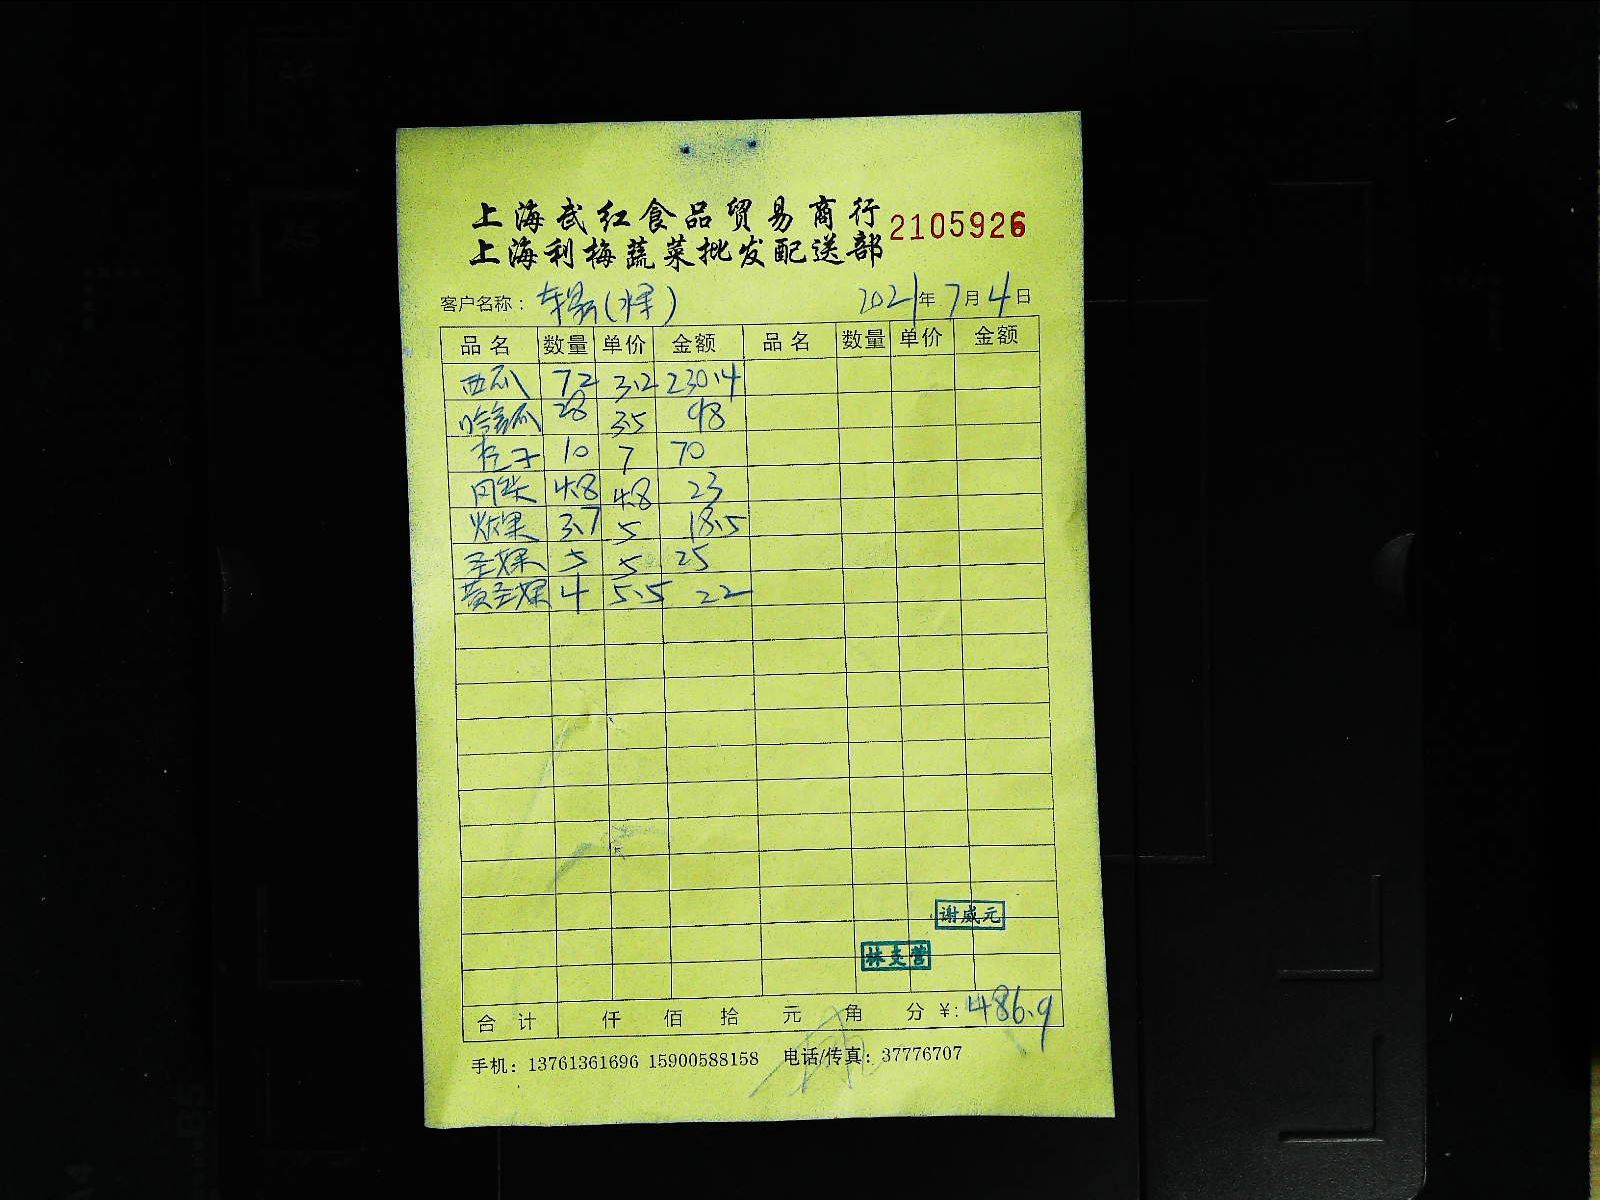 上海武红食品贸易商行
上海利梅蔬菜批发配送部 2105926
客户名称： 2021年7月4日
品名 数量 单价 金额 品名 数量 单价 金额
西瓜 72 3.2 230.4
哈密瓜 28 3.5 98
李子 10 7 70
4.8 4.8 23
火龙果 3.7 5 18.5
圣女果 5 5 25
黄圣女果 4 5.5 22
谢威元
林支营
合计 仟 佰 拾 元 角 分 ¥: 486.9
手机：13761361696 15900588158 电话/传真：37776707